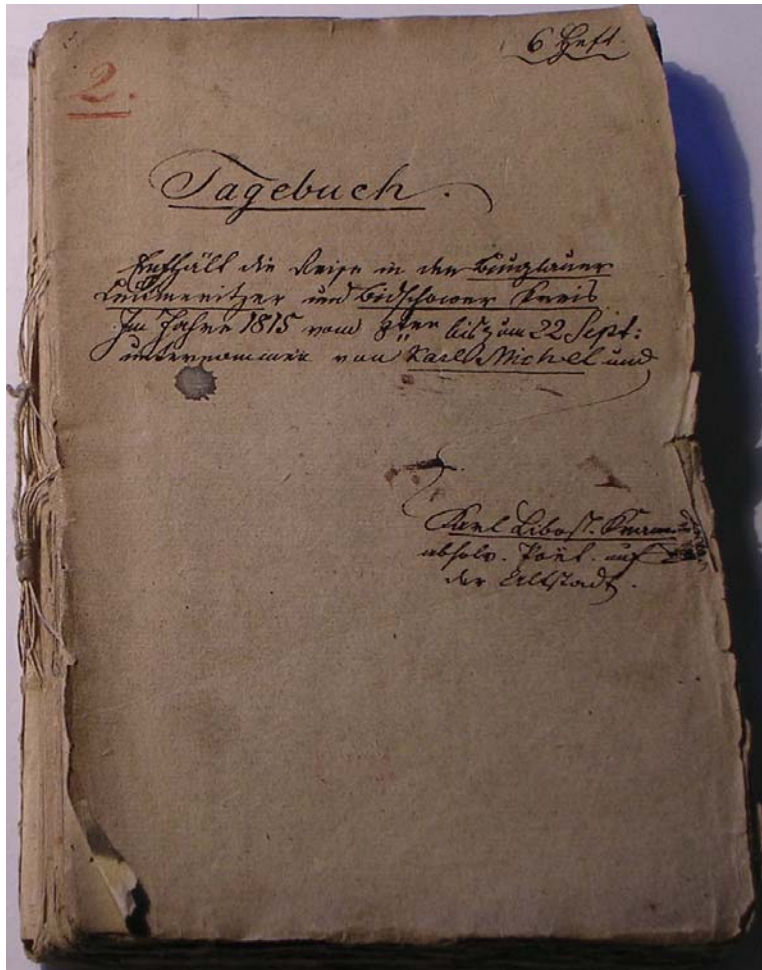 6 Heft.
2.
Tagebuch.
Enthält die Reise in den Bunzlauer
Leitmeritzer und Bidschower Kreis
Im Jahre 1815 vom 8ten bis zum 22 Sept:
unternommen von Karl Michel und
Karl Libost.
absolv. Poët. auf
der Altstadt.